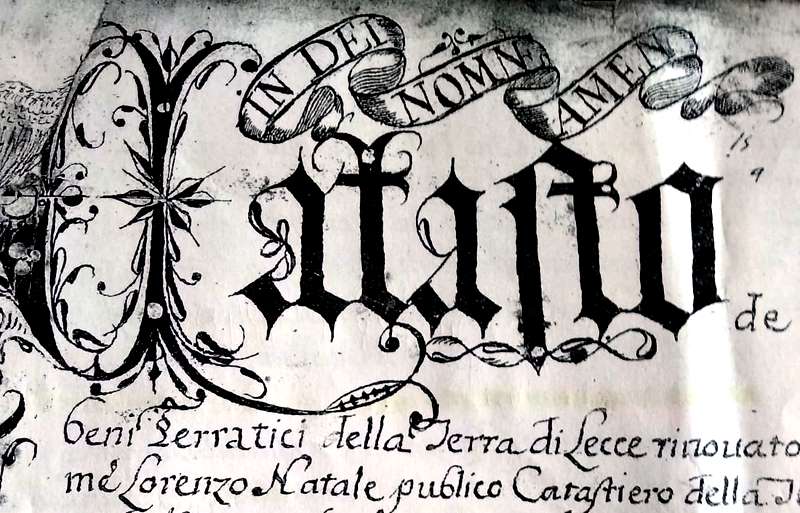 IN DEI NOMNE AMEN
Catasto de
beni Terratici della Terra di Lecce rinouato
me Lorenzo Natale publico Catastiero della